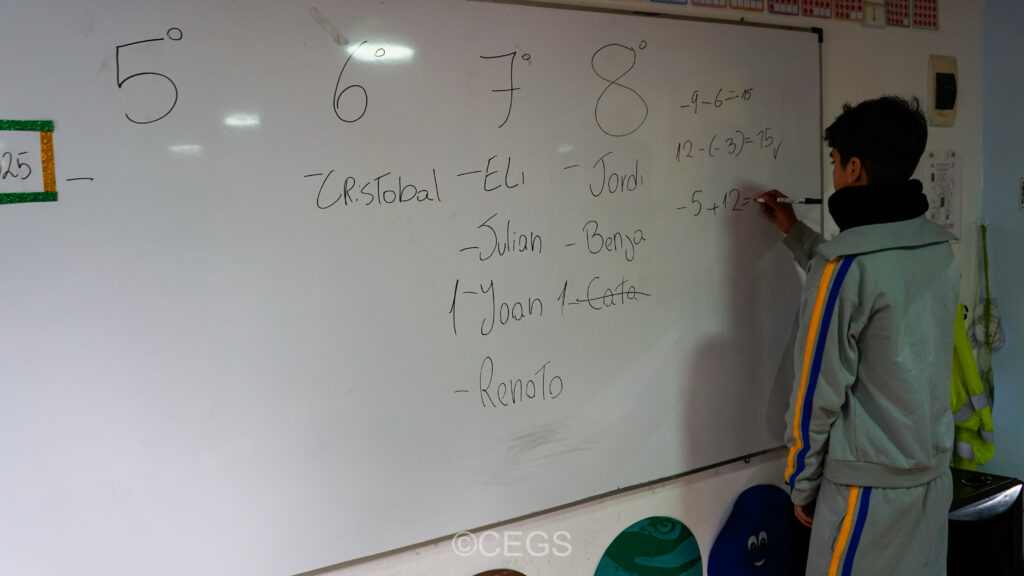 5° 6° 7° 8°
-9-6=-15
12-(-3)=15✓
-5+12=
25
-
-CRisTobal
-ELi
-Jordi
-Julian
-Benja
1-Yoan
1-Cata
-RenaTo
©CEGS